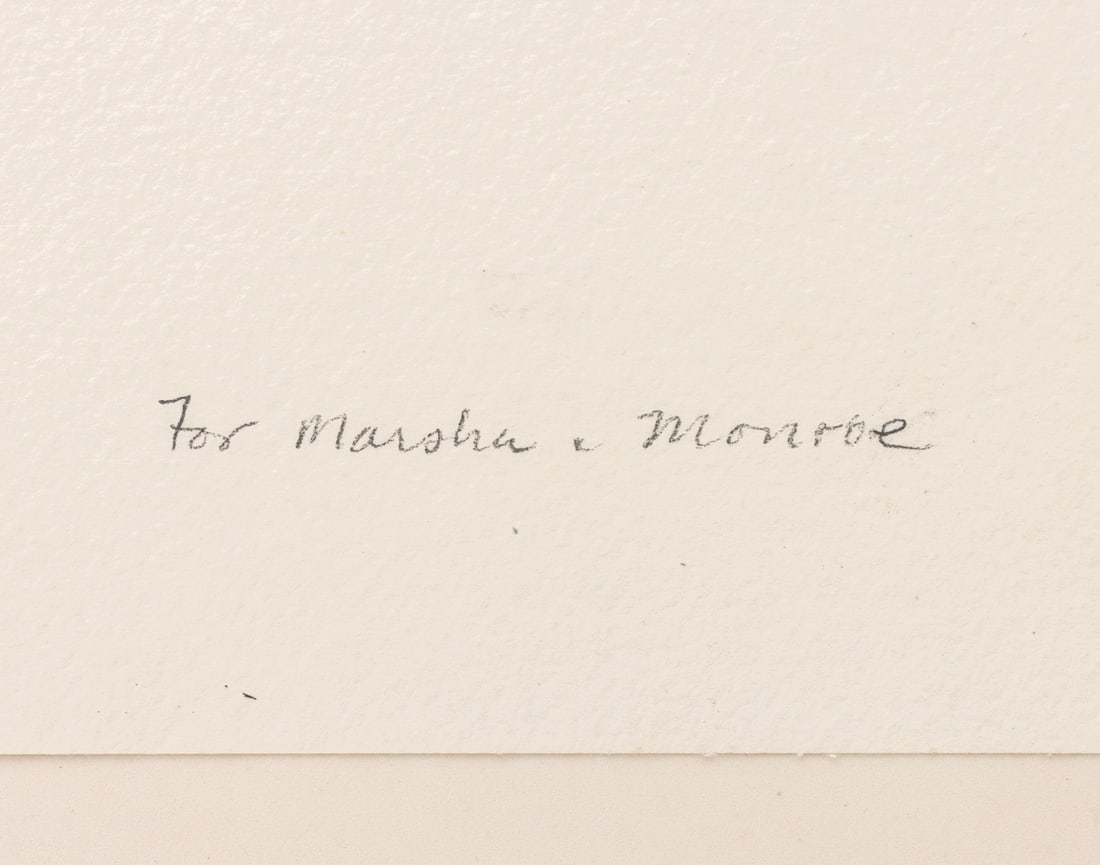 For Marsha & Monroe